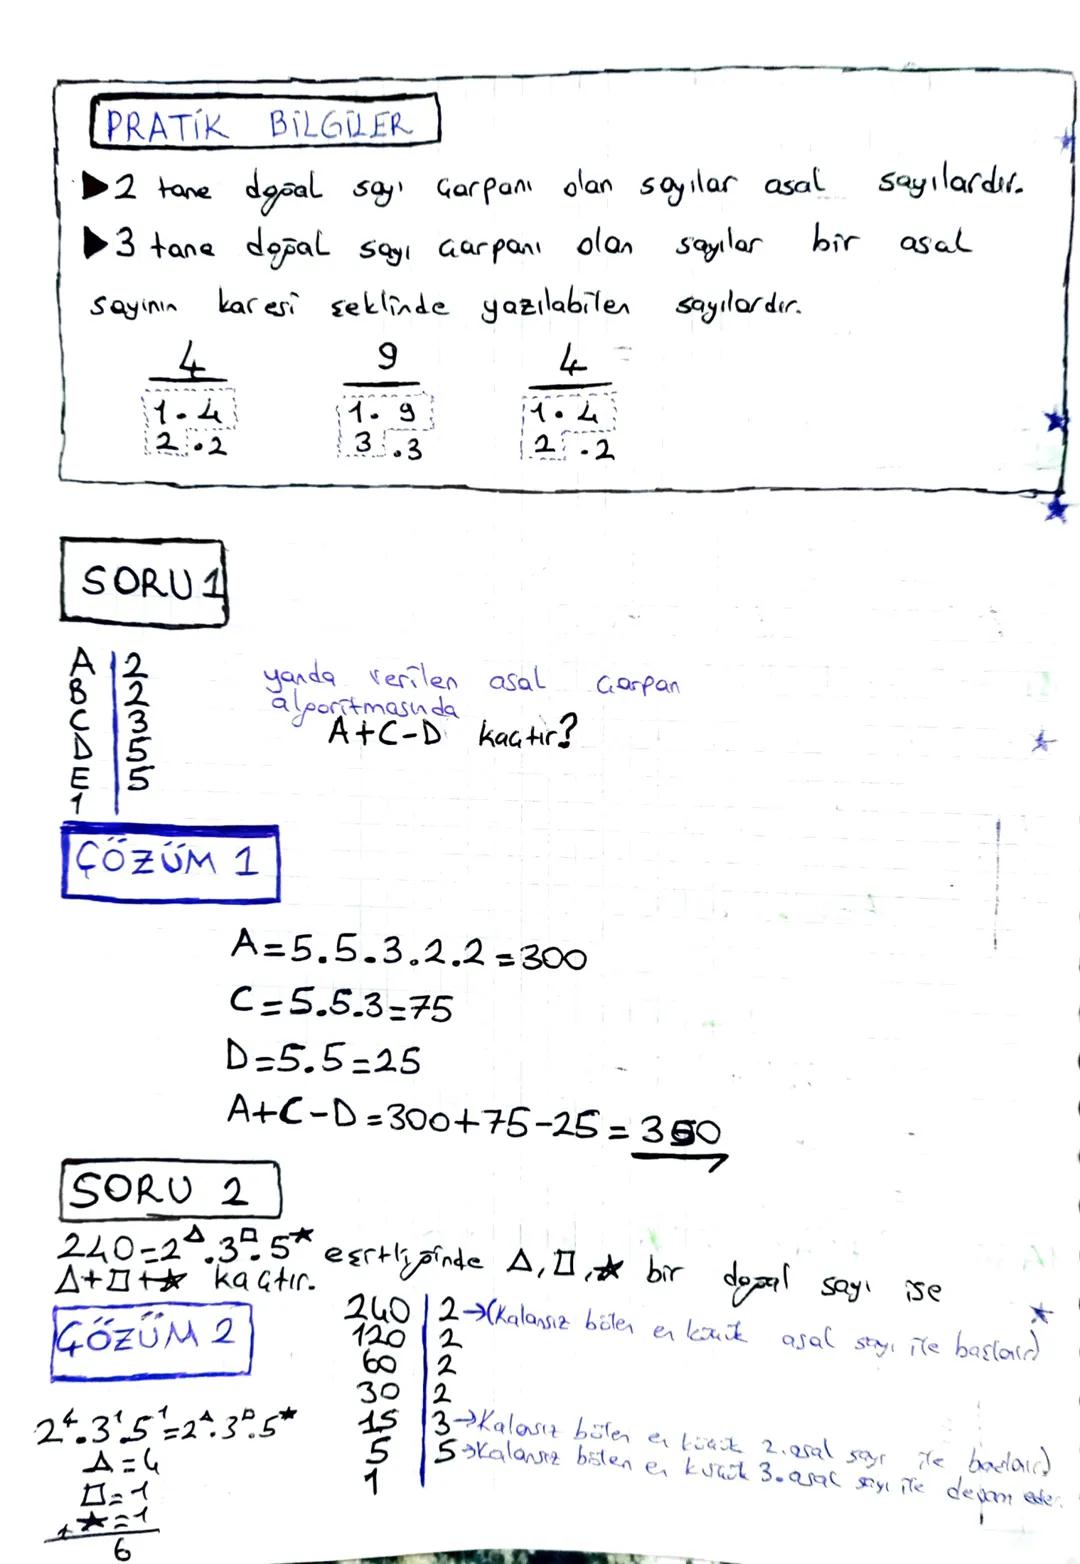 PRATİK BİLGİLER
▶2 tane dğoal sayı çarpanı olan sayılar asal sayılardır.
▶3 tane doğal sayı çarpanı olan sayılar bir asal
sayının karesi şeklinde yazılabilen sayılardır.
4 9 4
1.4 1.9 1.4
2.2 3.3 2.2
SORU 1
A | 2
B | 2
C | 3
D | 5
E | 5
1
yanda verilen asal çarpan
algoritmasında
A+C-D kaçtır?
ÇÖZÜM 1
A=5.5.3.2.2=300
C=5.5.3=75
D=5.5=25
A+C-D=300+75-25=350
SORU 2
240=2^△.3^□.5^★ eşitliğinde △,□,★ bir doğal sayı ise
△+□+★ kaçtır.
ÇÖZÜM 2
240 | 2→(Kalansız bölen en küçük asal sayı ile başlanır)
120 | 2
60 | 2
30 | 2
15 | 3→Kalansız bölen en küçük 2.asal sayı ile
5 | 5→Kalansız bölen en küçük 3.asal sayı ile devam eder.
1
2^4.3^1.5^1=2^△.3^□.5^★
△=4
□=1
+★=1
6